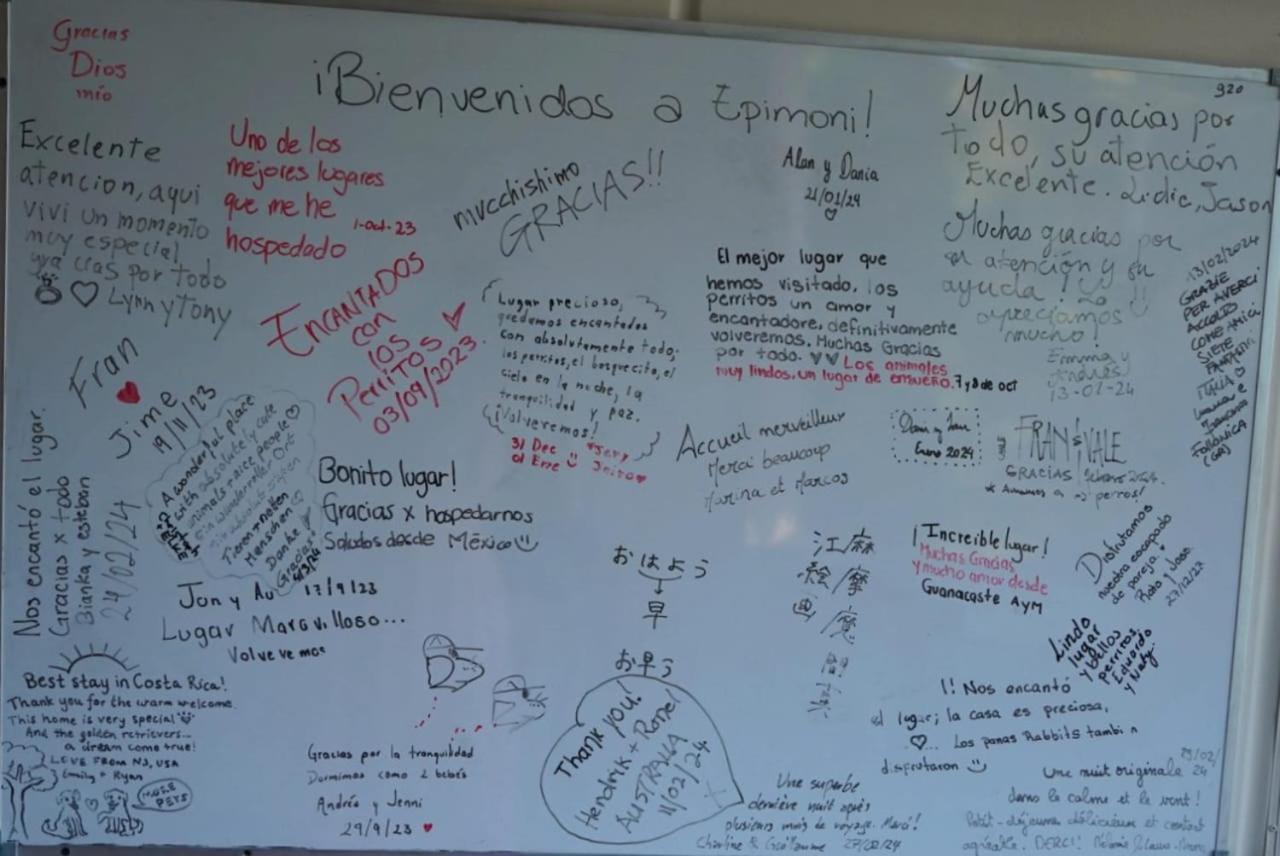 Gracias
Dios
mío
¡Bienvenidos a Epimoni!
920
Muchas gracias por
todo, su atención
Excelente. Lidic, Jason
Excelente
atencion, aqui
vivi un momento
muy especial
gracias por todo
Lynn y Tony
Uno de los
mejores lugares
que me he
hospedado
1-oct-23
mucchishimo
GRACIAS!!
Alan y Dania
21/01/24
Muchas gracias por
su atención y su
ayuda! Lo
apreciamos
mucho!
Emma y
Andrés
13-02-24
13/02/2024
GRAZIE
PER AVERCI
ACCOLTO
COME AMICI
SIETE
FANTASTICI
ITALIA
Follonica
(GR)
ENCANTADOS
con
los
Perritos
03/09/2023
Lugar precioso,
quedamos encantados
con absolutamente todo,
los perritos, el bosquecito, el
cielo en la noche, la
tranquilidad y paz.
¡Volveremos!
31 Dec
01 Ene
El mejor lugar que
hemos visitado, los
perritos un amor y
encantadore, definitivamente
volveremos. Muchas Gracias
por todo. Los animales
muy lindos, un lugar de ensueño. 7 y 8 de oct
Fran
Jime
19/11/23
Nos encantó el lugar.
Gracias x todo
Bianka y esteban
24/02/24
A wonderful place
with absolutely cute
animals + nice people
Ein wundervoller Ort
Tieren + netten
Menschen
Danke
Gracias
Bonito lugar!
Gracias x hospedarnos
Saludos desde México
Accueil merveilleux
Merci beaucoup
Marina et Marcos
Enero 2024
FRAN & VALE
GRACIAS, febrero 2024.
* Amamos a perros!
Jon y Au 17/9/23
Lugar Maravilloso...
Volvevemos
おはよう
早
お早う
江麻
絵摩
画/魔
¡Increible lugar!
Muchas Gracias
y mucho amor desde
Guanacaste AyM
Disfrutamos
nuestra escapada
de pareja
27/12/23
Lindo
lugar
y bellos
perritos.
Eduardo
y Naty.
Best stay in Costa Rica!
Thank you for the warm welcome.
This home is very special
And the golden retrievers...
a dream come true!
LOVE FROM NJ, USA
Emily + Ryan
MORE
PETS
Gracias por la tranquilidad
Dormimos como 2 bebés
Andrés y Jenni
29/9/23
Thank you!
Hendrik + Rone/
AUSTRALIA
11/02/24
¡! Nos encantó
el lugar; la casa es preciosa,
... Los panas Rabbits tambi n
disfrutaron
Une superbe
dernière nuit après
plusieurs mois de voyage. Merci!
Charline & Guillaume 27/02/24
Une nuit originale
dans le calme et le vent!
Petit-déjeuner délicieux et contact
agréable. MERCI!